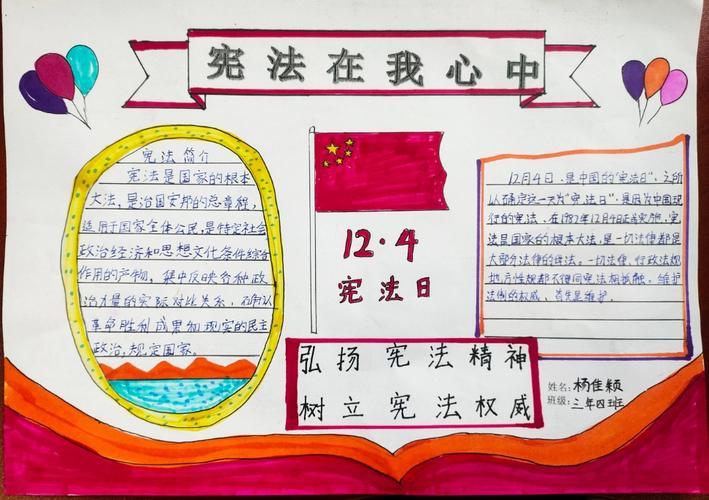 宪法在我心中
宪法简介
宪法是国家的根本
大法,是治国安邦的总章程,
适用于国家全体公民,是特定社会
政治经济和思想文化条件综合
作用的产物,集中反映各种政
治力量的实际对比关系,
革命胜利成果和现实的民主
政治,规定国家.
12·4
宪法日
12月4日,是中国的"宪法日",之所
以确定这一天为"宪法日",是因为中国现
行的宪法、在1982年12月4日正式实施,宪
法是国家的根本大法,是一切法律都是
大部分法律的母法。一切法律,行政法规
地方性规都不得同宪法相抵触。维护
法制的权威、首先是维护.
弘扬宪法精神
树立宪法权威
姓名:杨佳颖
班级:三年四班